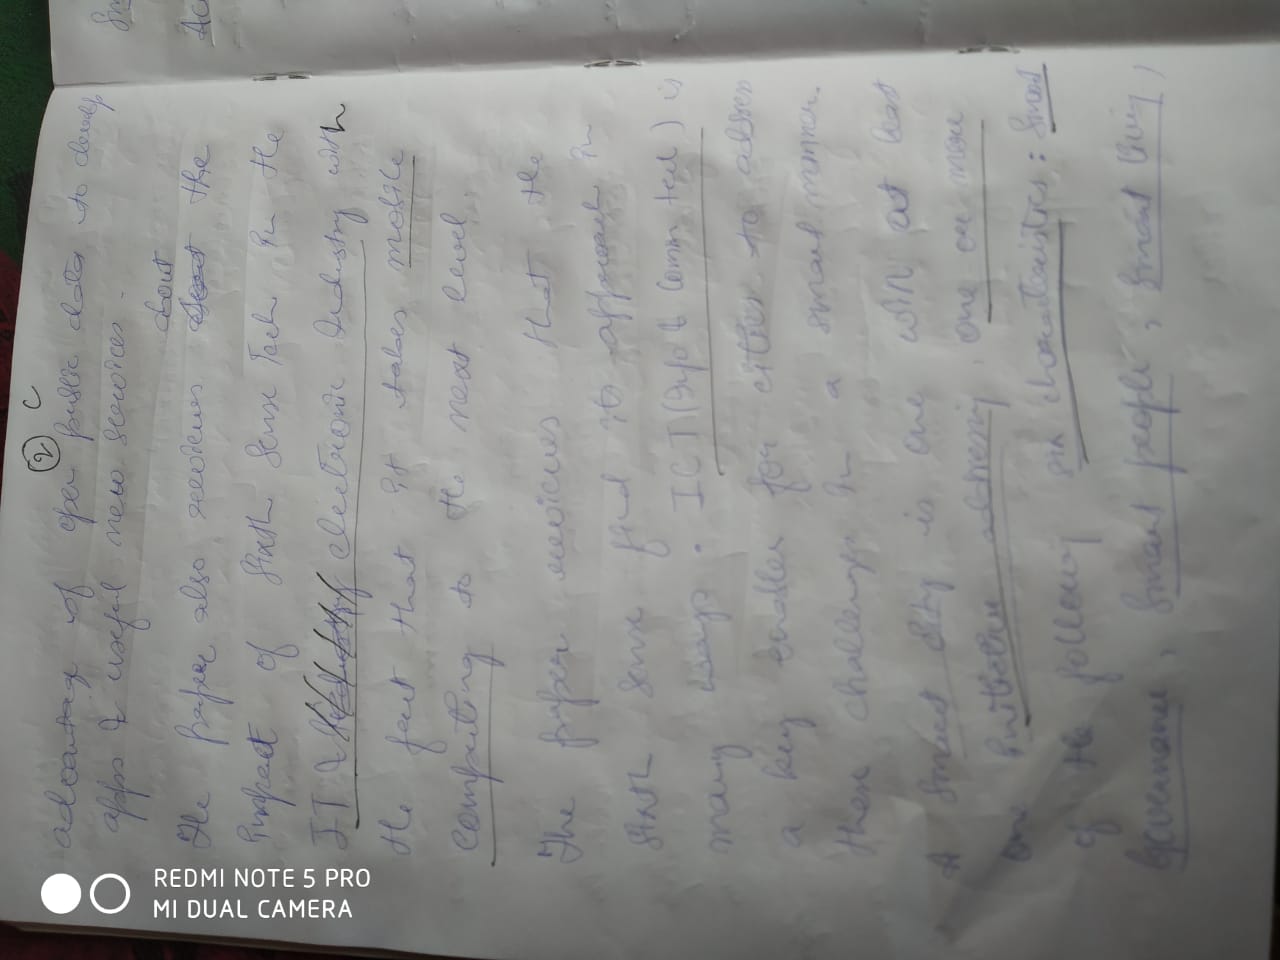 2 C
advantage of open public data to develop
apps & useful new services.
about
The paper also reviews about the
impact of Sixth Sense Tech in the
IT & industry electronic Industry with
the fact that it takes mobile
computing to the next level.
The paper reviews that the
sixth sense find its approach in
many ways. ICT (Info & Comm tech) is
a key enabler for cities to address
these challenges in a smart manner.
A Smart City is one with at least
one initiative addressing one or more
of the following six characteristics: Smart
Governance, Smart people, Smart living,
Sm
Ac
REDMI NOTE 5 PRO
MI DUAL CAMERA